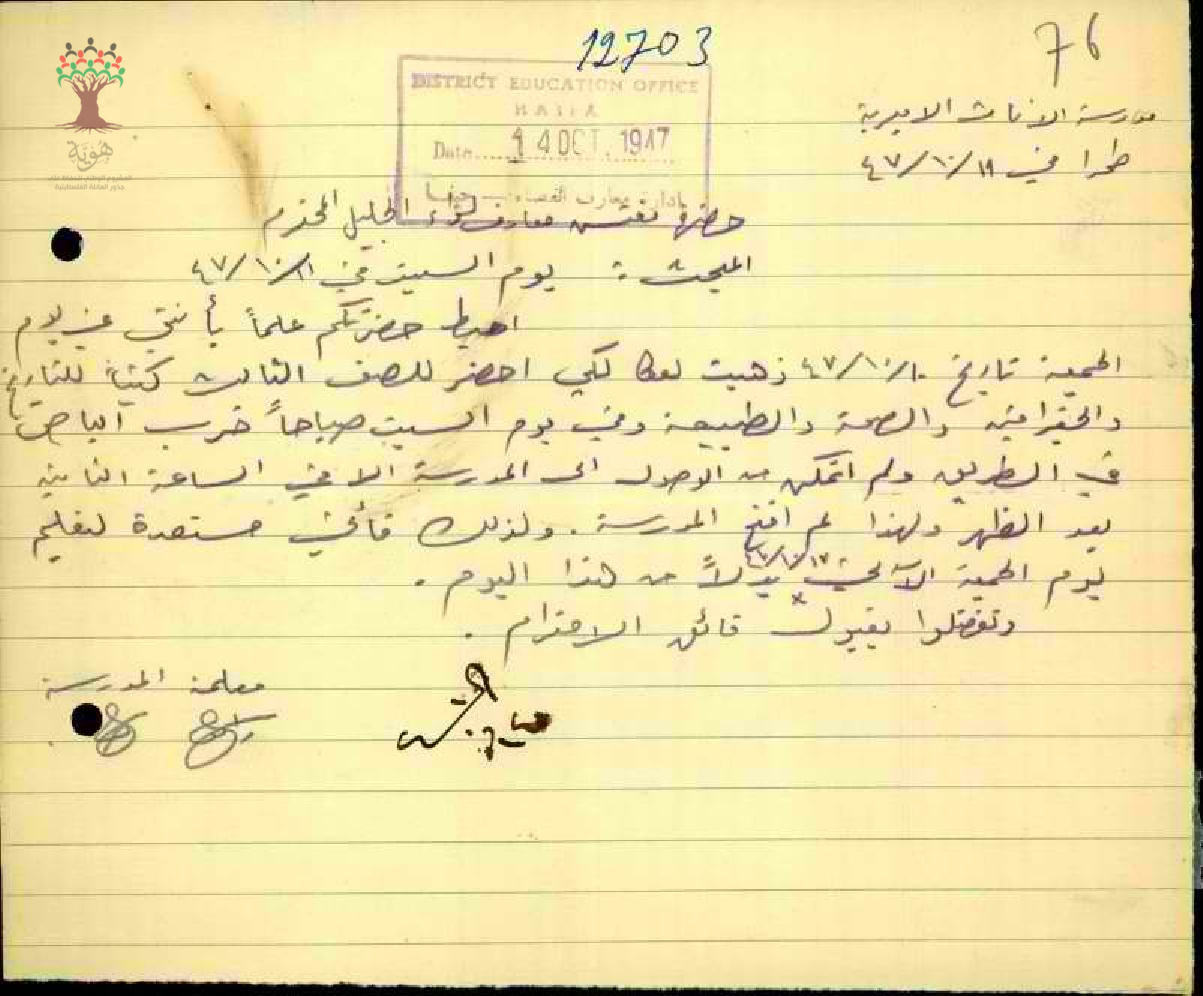 76
12703
DISTRICT EDUCATION OFFICE
HAIFA
Date 14 OCT. 1947
ادارة معارف القضاء حيفا
هوية
المشروع الوطني للحفاظ على
جذور العائلة الفلسطينية
مدرسة الاناث الاميرية
في ١١/١٠/٤٧
حضرة مفتش معارف لواء الجليل المحترم
المبحث : يوم السبت في ١١/١٠/٤٧
احيط حضرتكم علماً بأنني في يوم
الجمعة تاريخ ١٠/١٠/٤٧ ذهبت لعكا لكي احضر للصف الثالث كتباً للتاريخ
والجغرافية والصحة والطبيعة وفي يوم السبت صباحاً خرب الباص
في الطريق ولم اتمكن من الوصول الى المدرسة الا في الساعة الثانية
بعد الظهر ولهذا لم افتح المدرسة. ولذلك فأني مستعدة لتعليم
يوم الجمعة الآتي ١٧/١٠/٤٧ بدلاً من هذا اليوم .
وتفضلوا بقبول فائق الاحترام .
معلمة المدرسة